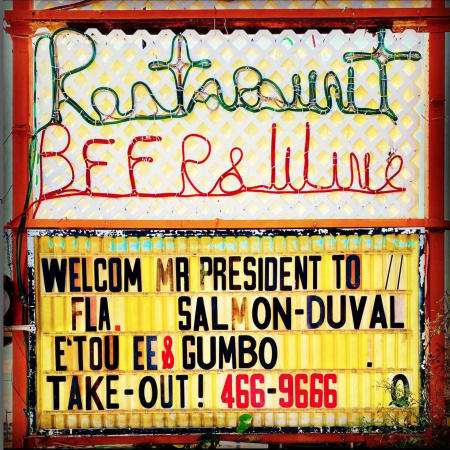 Restaurant
BEER & Wine
WELCOM MR PRESIDENT TO //
FLA. SALMON-DUVAL
E'TOU EE & GUMBO .
TAKE-OUT! 466-9666 0